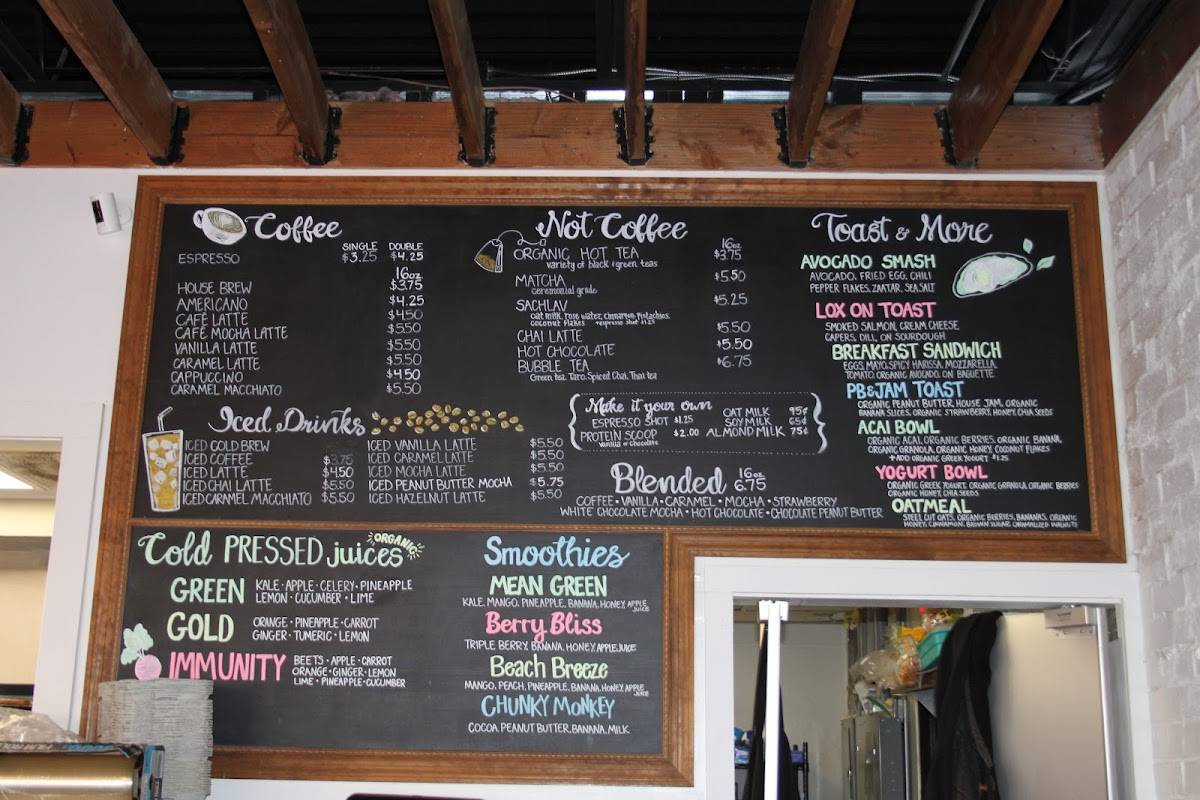 Coffee
SINGLE DOUBLE
ESPRESSO $3.25 $4.25
16oz
HOUSE BREW $3.75
AMERICANO $4.25
CAFÉ LATTE $4.50
CAFÉ MOCHA LATTE $5.50
VANILLA LATTE $5.50
CARAMEL LATTE $5.50
CAPPUCCINO $4.50
CARAMEL MACCHIATO $5.50
Iced Drinks
ICED COLD BREW
ICED COFFEE $3.75
ICED LATTE $4.50
ICED CHAI LATTE $5.50
ICED CARAMEL MACCHIATO $5.50
ICED VANILLA LATTE $5.50
ICED CARAMEL LATTE $5.50
ICED MOCHA LATTE $5.50
ICED PEANUT BUTTER MOCHA $5.75
ICED HAZELNUT LATTE $5.50
Not Coffee
16oz
ORGANIC HOT TEA $3.75
variety of black & green teas
MATCHA $5.50
ceremonial grade
SACHLAV $5.25
oat milk, rose water, cinnamon, pistachios,
coconut flakes +espresso shot $1.25
CHAI LATTE $5.50
HOT CHOCOLATE $5.50
BUBBLE TEA $6.75
Green tea, Taro, Spiced Chai, Thai tea
Make it your own
ESPRESSO SHOT $1.25
PROTEIN SCOOP $2.00
Vanilla or Chocolate
OAT MILK 95¢
SOY MILK 65¢
ALMOND MILK 75¢
Blended 16oz 6.75
COFFEE • VANILLA • CARAMEL • MOCHA • STRAWBERRY
WHITE CHOCOLATE MOCHA • HOT CHOCOLATE • CHOCOLATE PEANUT BUTTER
Toast & More
AVOCADO SMASH
AVOCADO, FRIED EGG, CHILI
PEPPER FLAKES, ZAATAR, SEA SALT
LOX ON TOAST
SMOKED SALMON, CREAM CHEESE
CAPERS, DILL, ON SOURDOUGH
BREAKFAST SANDWICH
EGGS, MAYO, SPICY HARISSA, MOZZARELLA
TOMATO, ORGANIC AVOCADO, ON BAGUETTE
PB&JAM TOAST
ORGANIC PEANUT BUTTER, HOUSE JAM, ORGANIC
BANANA SLICES, ORGANIC STRAWBERRY, HONEY, CHIA SEEDS
ACAI BOWL
ORGANIC ACAI, ORGANIC BERRIES, ORGANIC BANANA,
ORGANIC GRANOLA, ORGANIC HONEY, COCONUT FLAKES
+ADD ORGANIC GREEK YOGURT $1.25
YOGURT BOWL
ORGANIC GREEK YOGURT, ORGANIC GRANOLA, ORGANIC BERRIES
ORGANIC HONEY, CHIA SEEDS
OATMEAL
STEEL CUT OATS, ORGANIC BERRIES, BANANAS, ORGANIC
HONEY, CINNAMON, BROWN SUGAR, CARAMALIZED WALNUTS
Cold PRESSED juices ORGANIC
GREEN
KALE • APPLE • CELERY • PINEAPPLE
LEMON • CUCUMBER • LIME
GOLD
ORANGE • PINEAPPLE • CARROT
GINGER • TUMERIC • LEMON
IMMUNITY
BEETS • APPLE • CARROT
ORANGE • GINGER • LEMON
LIME • PINEAPPLE • CUCUMBER
Smoothies
MEAN GREEN
KALE, MANGO, PINEAPPLE, BANANA, HONEY, APPLE JUICE
Berry Bliss
TRIPLE BERRY, BANANA, HONEY, APPLE JUICE
Beach Breeze
MANGO, PEACH, PINEAPPLE, BANANA, HONEY, APPLE JUICE
CHUNKY MONKEY
COCOA, PEANUT BUTTER, BANANA, MILK